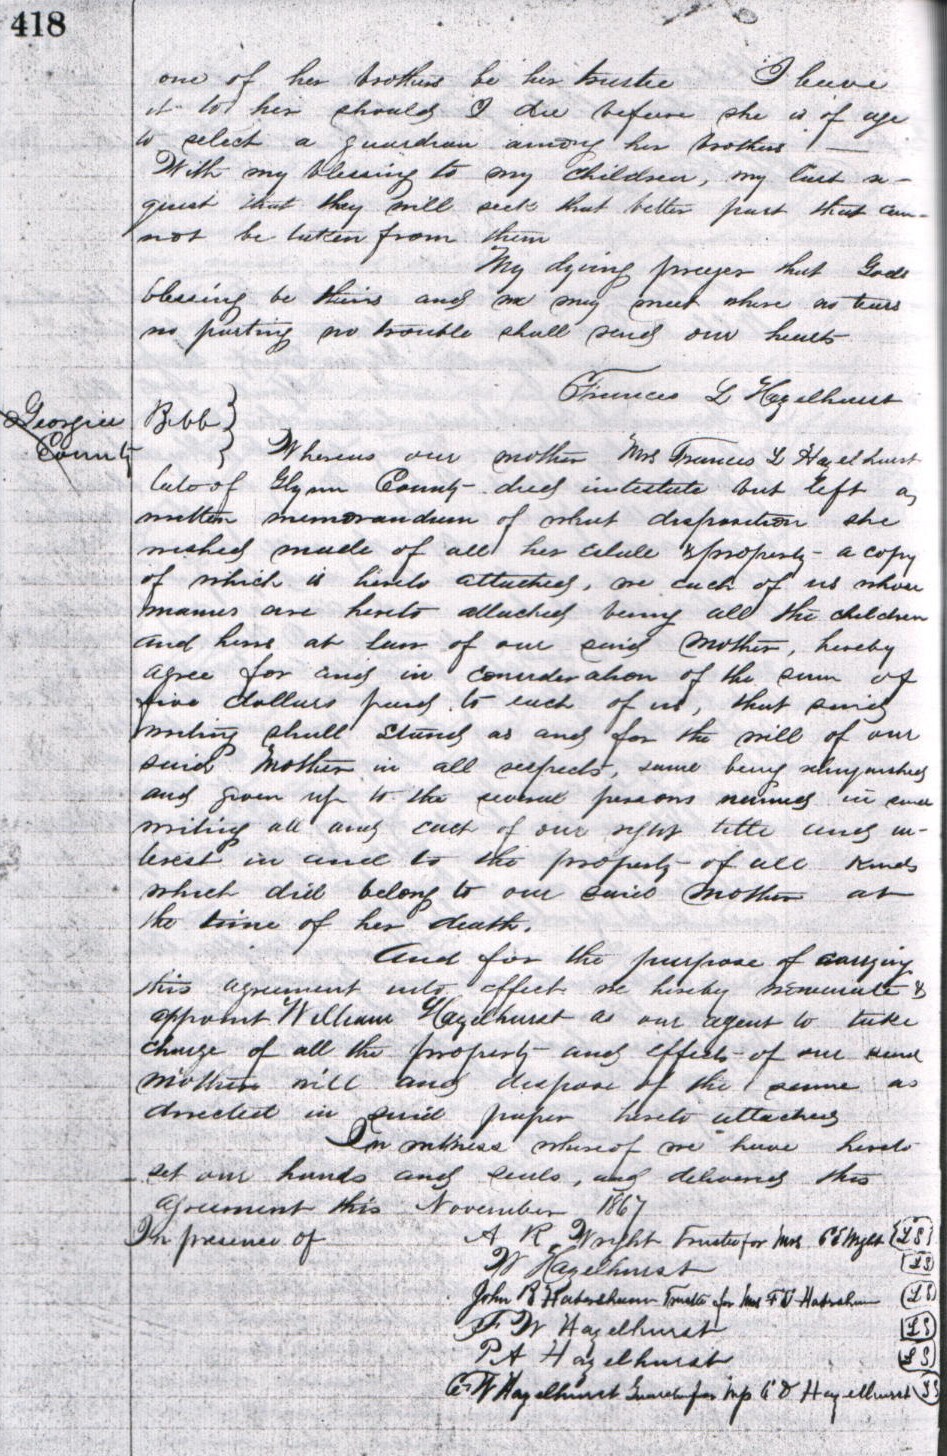 418
one of her brothers be her trustee I leave
it to her should I die before she is of age
to select a guardian among her brothers —
With my blessing to my children, my last re-
quest that they will seek that better part that can-
not be taken from them
My dying prayer that Gods
blessing be theirs and we may meet where no tears
no parting no trouble shall rend our hearts
Frances L Hazelhurst
Georgia Bibb }
County }
Whereas our mother Mrs Frances L Hazelhurst
late of Glynn County died intestate but left a
written memorandum of what disposition she
wished made of all her Estate & property - a copy
of which is hereto attached, we each of us whose
names are hereto attached being all the children
and heirs at law of our said Mother, hereby
agree for and in consideration of the sum of
five dollars paid to each of us, that said
writing shall stand as and for the will of our
said Mother in all respects, same being relinquished
and given up to the several persons named in said
writing all and each of our right title and in-
terest in and to the property of all kinds
which did belong to our said Mother at
the time of her death.
And for the purpose of carrying
this agreement into effect we hereby nominate &
appoint William Hazelhurst as our agent to take
charge of all the property and effects of our said
mothers will and dispose of the same as
directed in said paper hereto attached
In witness whereof we have hereto
set our hands and seals, and delivered this
agreement this November 1867
In presence of A R Wright Trustee for Mrs (LS)
W Hazelhurst (LS)
John R Habersham Trustee for Mrs F V Habersham (LS)
F W Hazelhurst (LS)
P A Hazelhurst (LS)
G W Hazelhurst Guardian for C D Hazelhurst (LS)